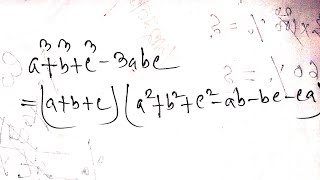 a³+b³+c³-3abc
=(a+b+c)(a²+b²+c²-ab-bc-ca)